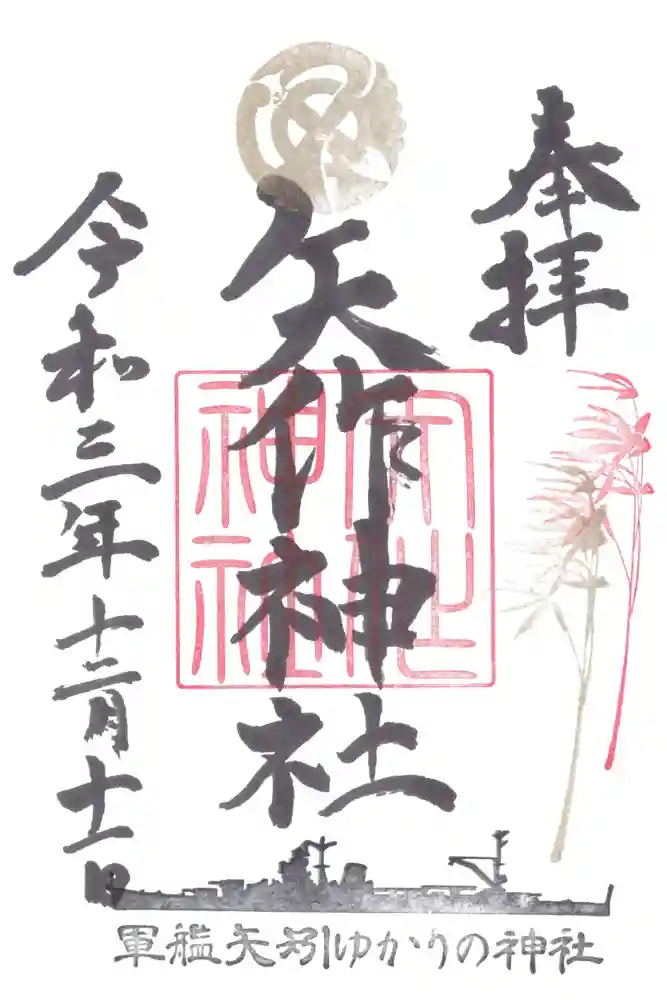 奉拝
矢作神社
矢作
神社
令和三年十二月十一日
軍艦矢矧ゆかりの神社